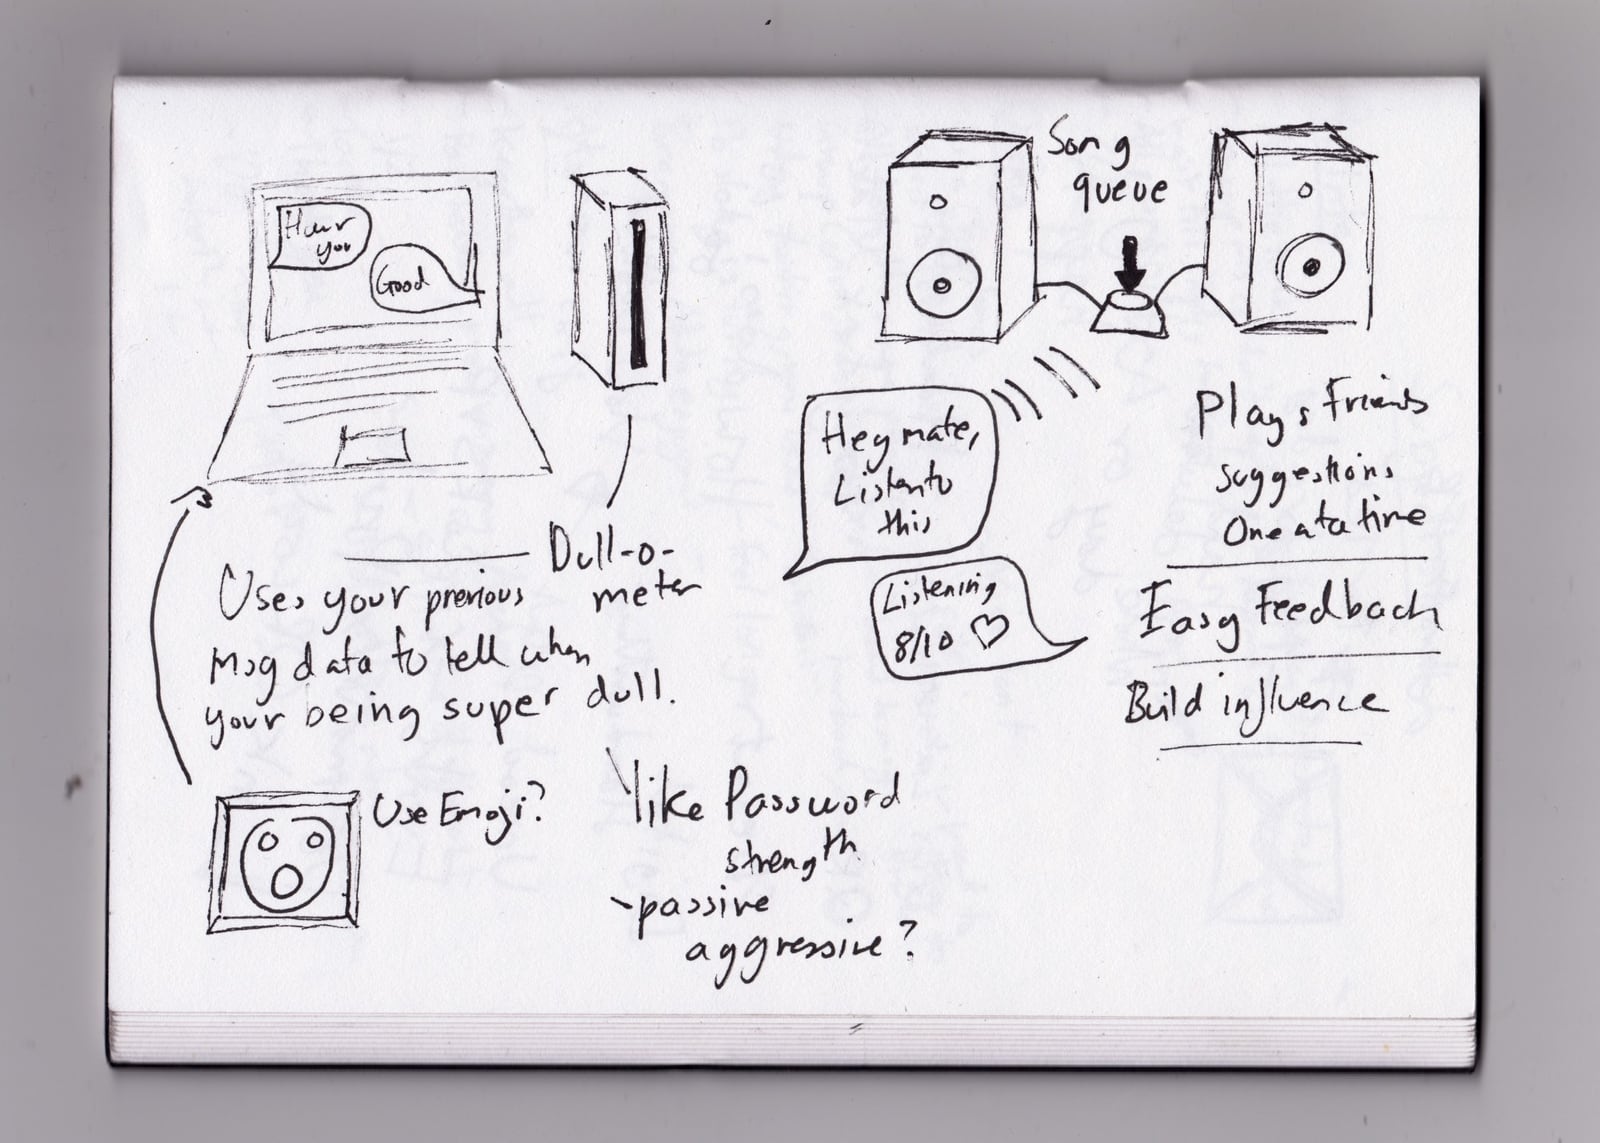 How r
you
Good
Dull-o-
meter
Uses your previous
msg data to tell when
your being super dull.
Use Emoji?
like Password
strength
-passive
aggressive?
Song
queue
Hey mate,
Listen to
this
Listening
8/10 ♡
Plays Friends
suggestions
One at a time
Easy Feedback
Build influence